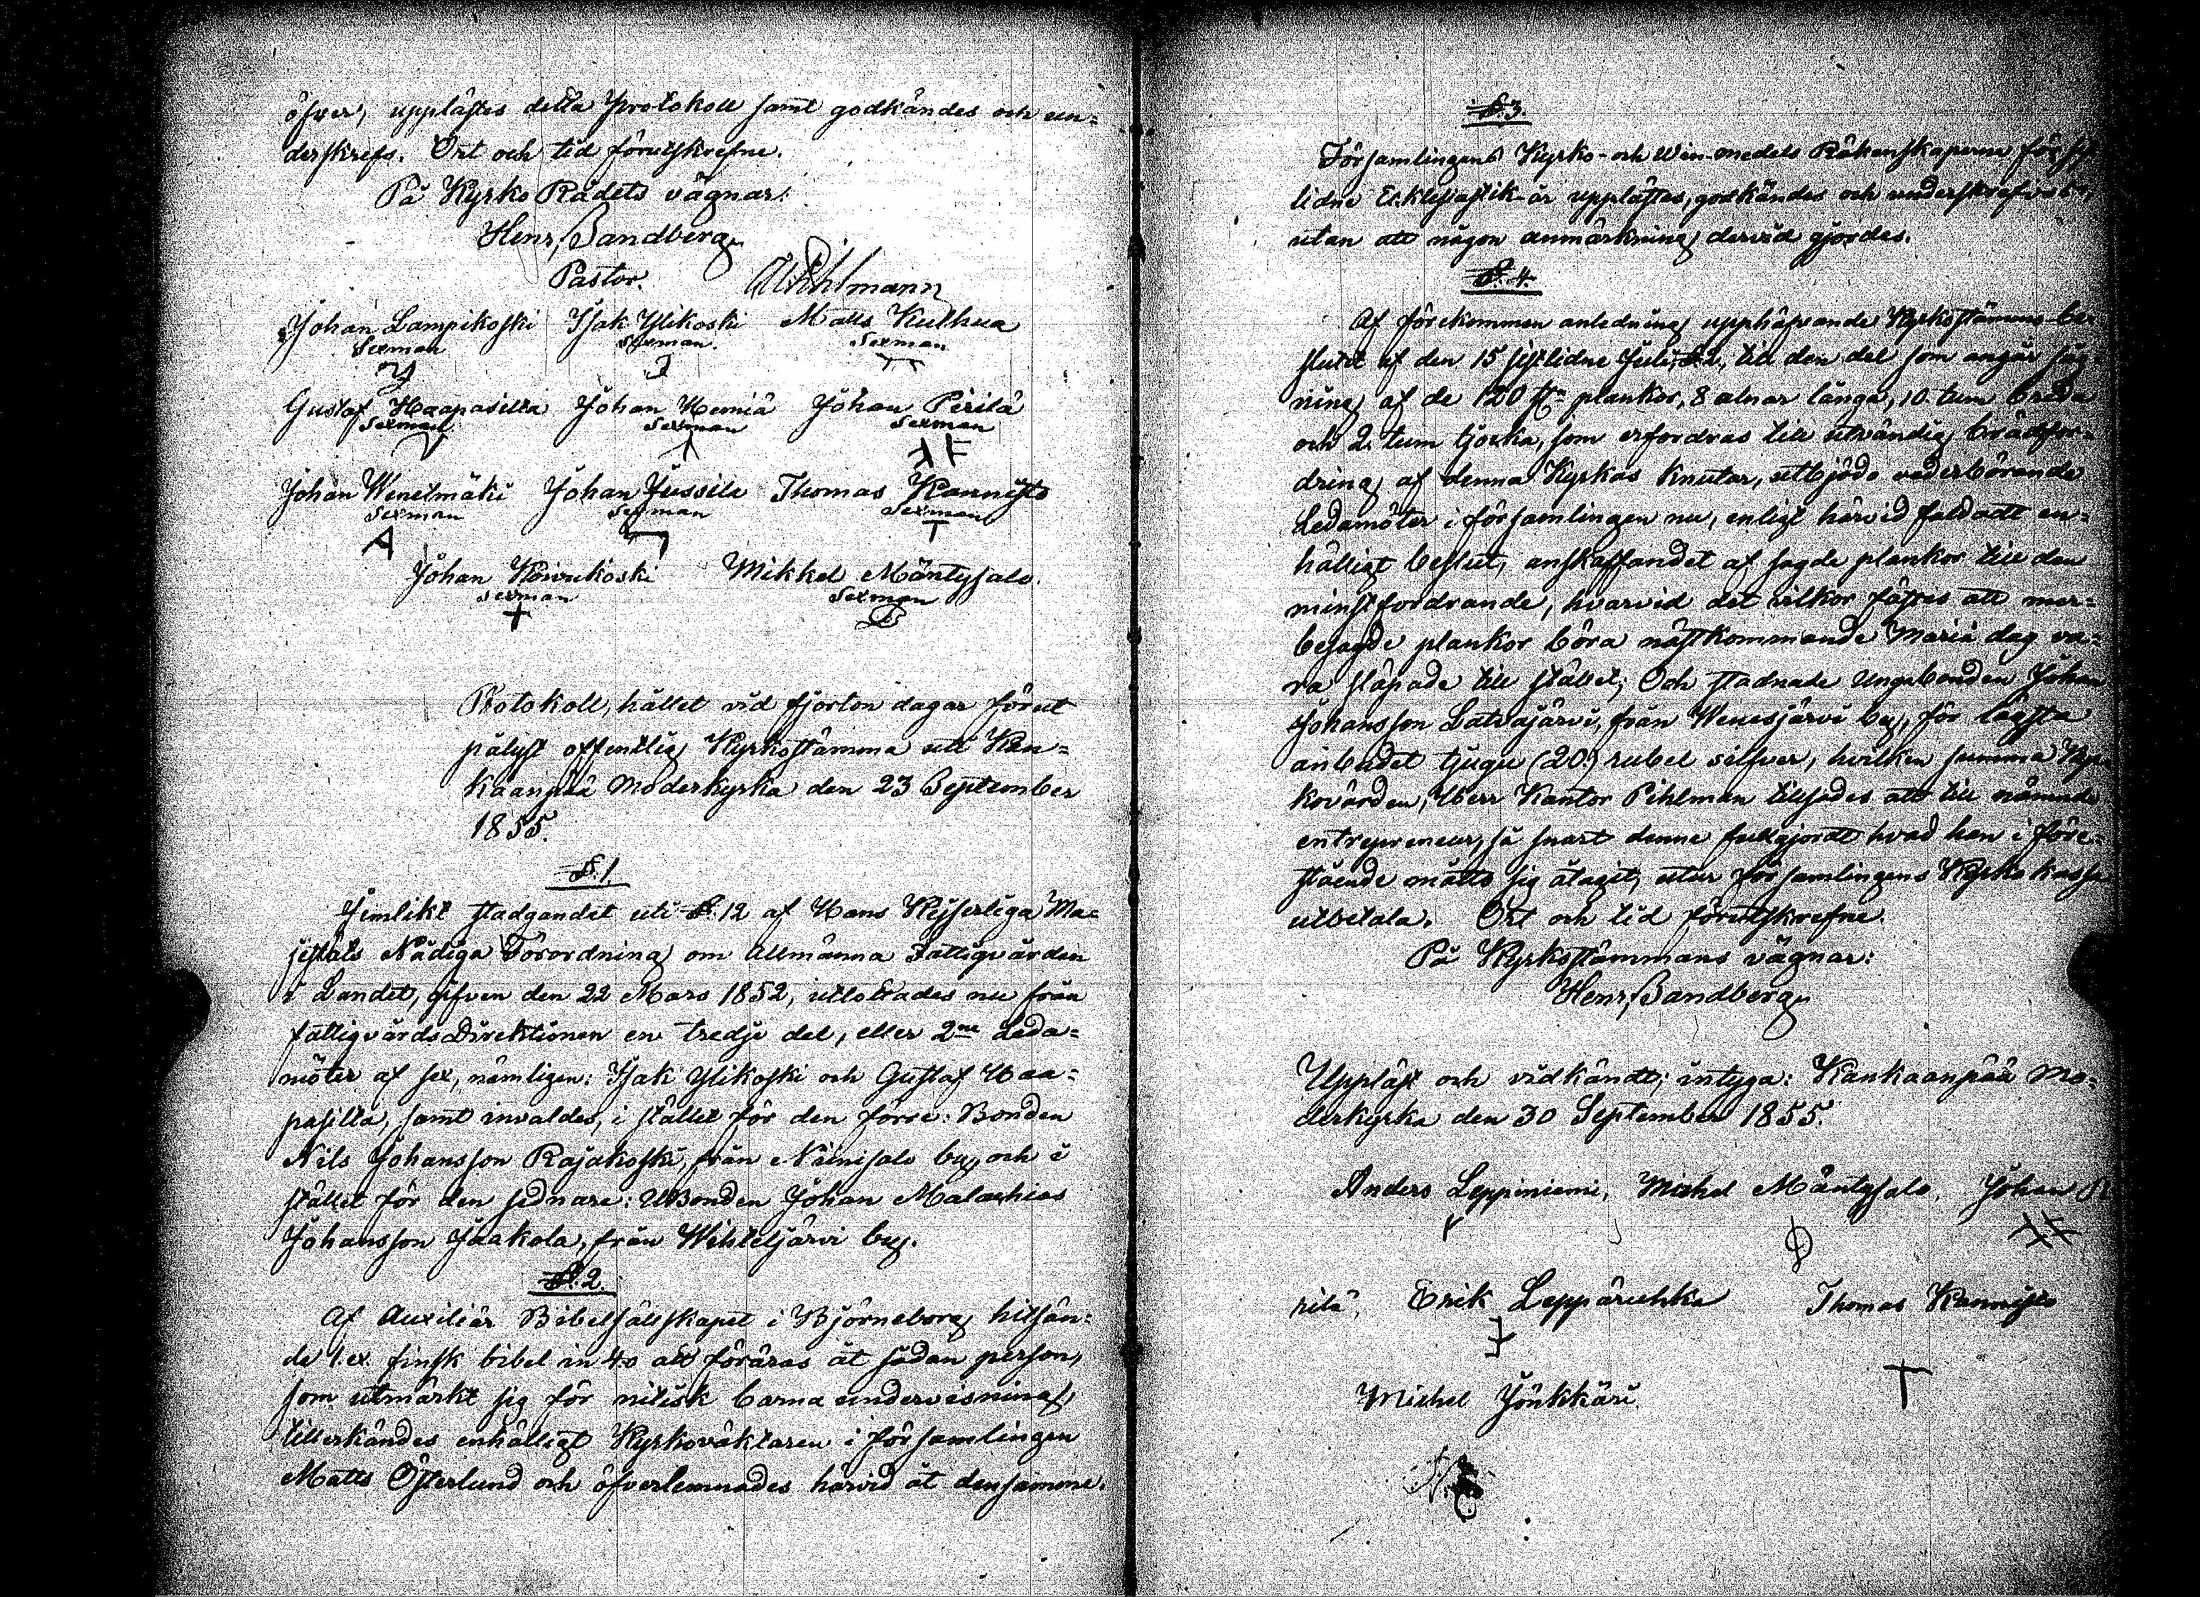 öfver, upplästes detta Protokoll samt godkändes och un-
derskrefs. Ort och tid förutskrefne.
På Kyrko Rådets vägnar:
Henr, Sandberg,
Pastor. Pihlmann
Johan Lampikoski Isak Ylikoski Matts Kulhua
Sexman Sexman. Sexman
Gustaf Haapasilta Johan Hemiä Johan Perilä
Sexman Sexman Sexman
Johan Wenelmäki Johan Jussila Thomas Kannisto
Sexman Sexman Sexman
Johan Koivukoski Mikkel Mäntysalo.
Sexman Sexman
Protokoll, hållet vid fjorton dagar förut
pålyst offentlig Kyrkostämma uti Kan-
kaanpää Moderkyrka den 23 September
1855.
§. 1.
Jemlikt stadgandet uti §. 12 af Hans Kejserliga Ma-
jestäts Nådiga Förordning om Allmänna Fattigvården
i Landet, gifven den 22 Mars 1852, utlottades nu från
fattigvårdsDirektionen en tredje del, eller 2ne Leda-
möter af sex, nämligen: Isak Ylikoski och Gustaf Haa-
pasilta, samt invaldes, i stället för den förre: Bonden
Nils Johansson Rajakoski, från Niinisalo by, och i
stället för den sednare: Bonden Johan Malachias
Johansson Jaakola, från Wihteljärvi by.
§. 2.
Af Auxiliär Bibelsällskapet i Björneborg hitsän-
de 1. ex. finsk bibel in 4:o att föräras åt sådan person,
som utmärkt sig för nitisk barna undervisning,
tillerkändes enhälligt Kyrkoväktaren i församlingen
Matts Österlund och öfverlemnades härvid åt densamme.
§. 3.
Församlingens Kyrko- och Win-medels Räkenskaperna för
lidne Ecklesiastik-år upplästes, godkändes och underskrefvos
utan att någon anmärkning dervid gjordes.
§. 4.
Af förekommen anledning upphäfvande Kyrkostämmo be-
slutet af den 15 sistlidne Juli, §. 2, till den del som angår såg-
ning af de 120 st. plankor, 8 alnar långa, 10. tum breda
och 2. tum tjocka, som erfordras till utvändig brädfor-
dring af denna Kyrkas knutar, utbjödo vederbörande
Ledamöter i församlingen nu, enligt härvid fattadt en-
hälligt beslut, anskaffandet af sagde plankor till den
minstfordrande, hvarvid det vilkor fästes att mer-
besagde plankor böra nästkommande Mariä dag va-
ra släpade till stället; Och stadnade Ungbonden Johan
Johansson Latvajärvi, från Wenesjärvi by, för lägsta
anbudet tjugu (20) rubel silfver, hvilken summa Kyr-
kovärden, Herr Kantor Pihlman tillsades att till nämnde
entrepreneur, så snart denne fullgjordt hvad han i före-
stående måtto sig åtagit, utur församlingens Kyrko kassa
utbetala. Ort och tid förutskrefne.
På Kyrkostämmans vägnar:
Henr, Sandberg,
Uppläst och vidkändt; intyga: Kankaanpää Mo-
derkyrka den 30 September 1855.
Anders Leppiniemi, Michel Mäntysalo, Johan Pe
rilä, Erik Leppäruhka Thomas Kannisto
Michel Jönkkäri